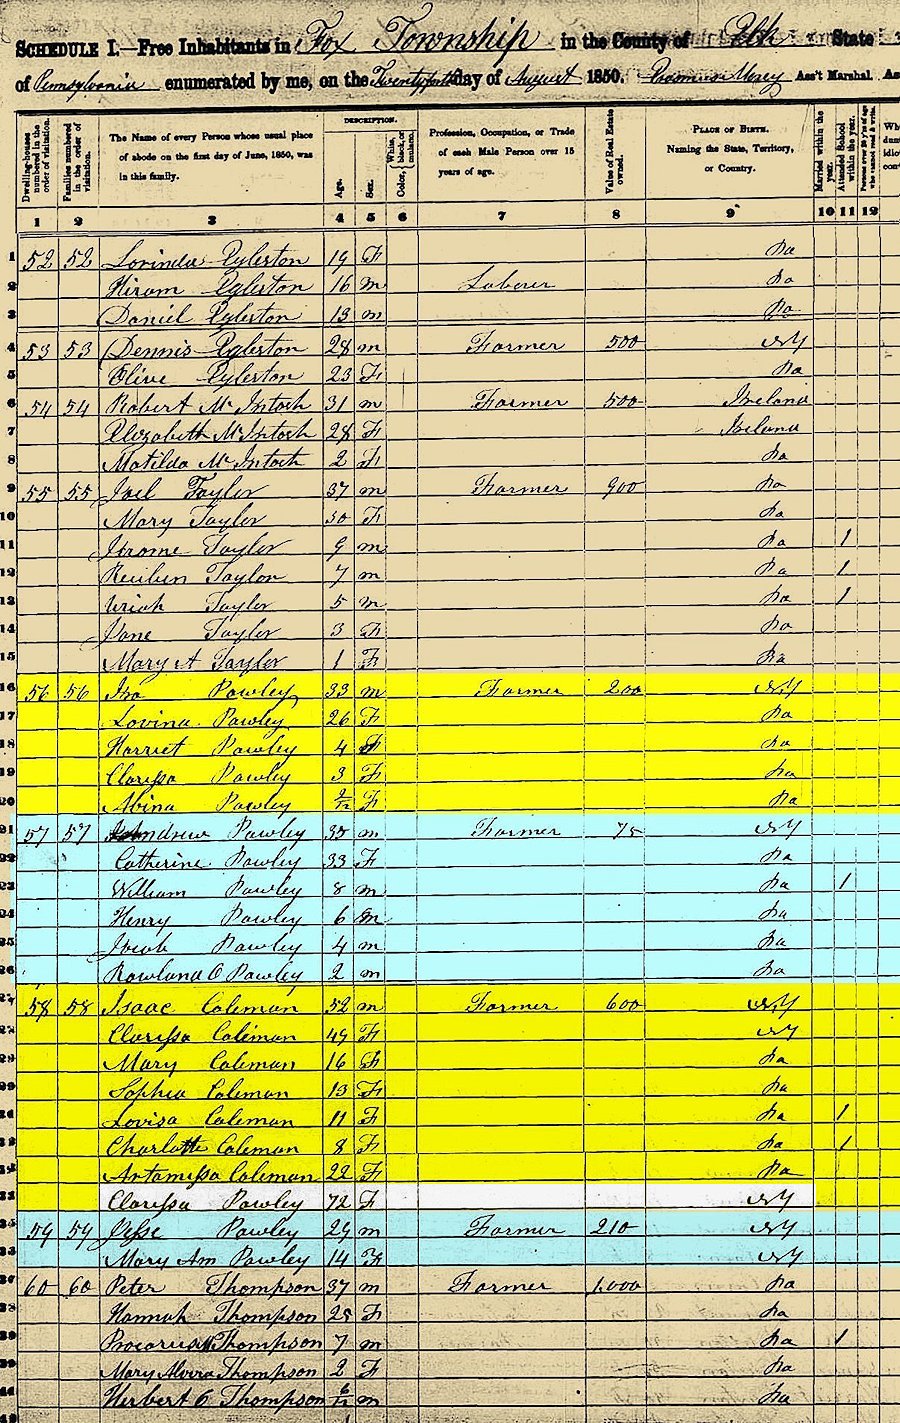 SCHEDULE I.—Free Inhabitants in Fox Township in the County of Elk State
of Pennsylvania enumerated by me, on the day of August 1850. Ass't Marshal.
Dwelling-houses numbered in the order of visitation.
Families numbered in the order of visitation.
The Name of every Person whose usual place of abode on the first day of June, 1850, was in this family.
DESCRIPTION.
Age.
Sex.
Color, { White, black, or mulatto.
Profession, Occupation, or Trade of each Male Person over 15 years of age.
Value of Real Estate owned.
PLACE OF BIRTH. Naming the State, Territory, or Country.
Married within the year.
Attended School within the year.
Persons over 20 y'rs of age who cannot read & write.
1 2 3 4 5 6 7 8 9 10 11 12
1 52 52 Lorinda Eglerton 19 F Pa
2 Hiram Eglerton 16 m Laborer Pa
3 Daniel Eglerton 13 m Pa
4 53 53 Dennis Eglerton 28 m Farmer 500 NY
5 Olive Eglerton 23 F Pa
6 54 54 Robert McIntosh 31 m Farmer 500 Ireland
7 Elizabeth McIntosh 28 F Ireland
8 Matilda McIntosh 2 F Pa
9 55 55 Joel Taylor 37 m Farmer 900 Pa
10 Mary Taylor 30 F Pa
11 Jerome Taylor 9 m Pa 1
12 Reuben Taylor 7 m Pa 1
13 Uriah Taylor 5 m Pa 1
14 Jane Taylor 3 F Pa
15 Mary A Taylor 1 F Pa
16 56 56 Ira Pawley 33 m Farmer 200 NY
17 Lovina Pawley 26 F Pa
18 Harriet Pawley 4 F Pa
19 Clarissa Pawley 3 F Pa
20 Abina Pawley 9/12 F Pa
21 57 57 Andrew Pawley 35 m Farmer 75 NY
22 Catherine Pawley 33 F Pa
23 William Pawley 8 m Pa 1
24 Henry Pawley 6 m Pa
25 Jacob Pawley 4 m Pa
26 Rowland O Pawley 2 m Pa
27 58 58 Isaac Coleman 52 m Farmer 600 NY
Clarissa Coleman 49 F NY
Mary Coleman 16 F Pa
Sophia Coleman 13 F Pa
Lovisa Coleman 11 F Pa 1
Charlotte Coleman 8 F Pa 1
Artamissa Coleman 22 F Pa
Clarissa Pawley 72 F NY
59 59 Jesse Pawley 29 m Farmer 210 NY
Mary Am Pawley 14 F NY
60 60 Peter Thompson 37 m Farmer 1,000 Pa
Hannah Thompson 25 F Pa
Thompson 7 m Pa 1
Mary Alvira Thompson 2 F Pa
Herbert C Thompson 6/12 m Pa